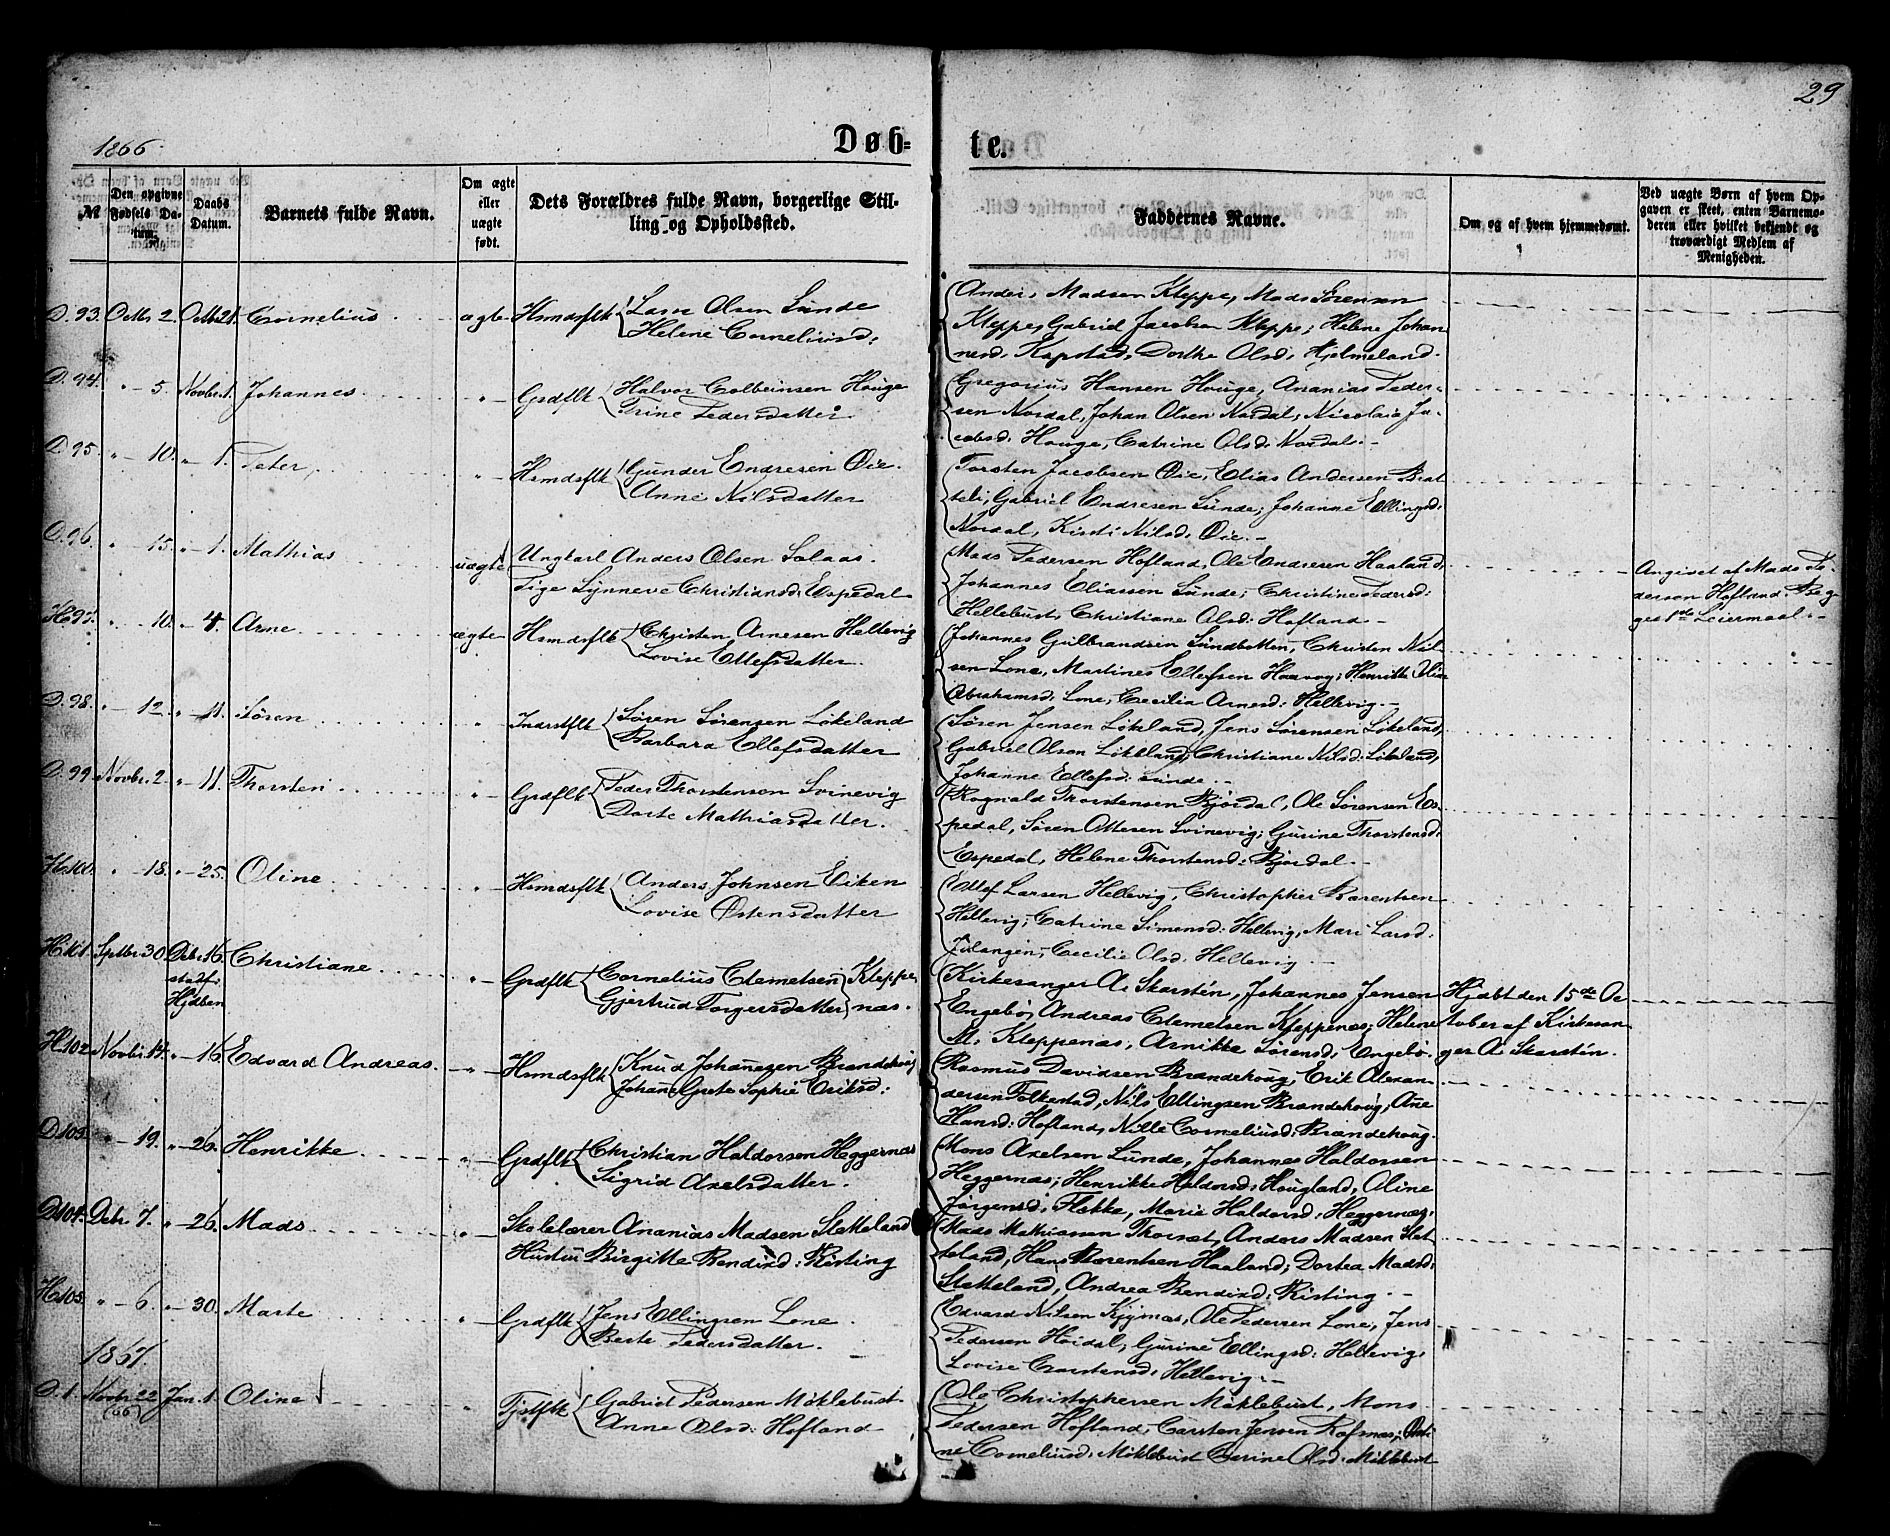 29
1866.
Døb-
te.
№
Den opgivne Fødsels Datum.
Daabs Datum.
Barnets fulde Navn.
Om ægte eller uægte født.
Dets Forældres fulde Navn, borgerlige Stilling og Opholdssted.
Faddernes Navne.
Om og af hvem hjemmedøbt.
Ved uægte Børn af hvem Opgaven er skeet, enten Barnemoderen eller hvilket bekjendt og troværdigt Medlem af Menigheden.
D. 93. Octbr 2. Octbr 21. Cornelius ægte Hsmdsflk Lasse Olsen Sunde
Helene Corneliusd:
Anders Madsen Kleppe, Mads Sørensen
Kleppe, Gabriel Jacobsen Kleppe; Helene Johan-
nesd: Kapstad, Dorthe Olsd: Hjelmeland.
D. 94. " - 5. Novbr. 1. Johannes " Grdflk Halvor Colbeinsen Houge
Trine Pedersdatter
Gregorius Hansen Houge, Ananias Peder-
sen Nordal, Johan Olsen Nordal; Nicolaia Ja-
cobsd: Houge, Catrine Olsd: Nordal. -
D. 95. " - 10. " - 1. Peter, " Hsmdsflk Gunder Endresen Øie.
Anne Nilsdatter
Torsten Jacobsen Øie, Elias Andersen Brat-
teli, Gabriel Endresen Sunde; Johanne Ellingsd:
Nordal, Kirsti Nilsd: Øie. -
D. 96. " - 15. " - 1. Mathias uægte Ungkarl Anders Olsen Solaas.
Pige Synneve Christiansd: Espedal
Mads Pedersen Hofland, Ole Endresen Haaland,
Johannes Eliassen Sunde; Christine Pedersd:
Hellebust, Christiane Olsd: Hofland -
Angivet af Mads Pe-
dersen Hofland. Beg-
ges 1ste Leiermaal. -
H. 97. " - 10. " - 4. Arne ægte Hsmdsflk Christen Arnesen Hellevig
Lovise Ellefsdatter.
Johannes Gulbrandsen Sundbotten, Christen Nil-
sen Lone, Martines Ellefsen Haavog; Henrikke Olia
Abrahamsd: Lone, Cecilia Arnesd: Hellevig. -
D. 98. " - 12. " - 11. Søren " Indrstflk Søren Sørensen Løkeland
Barbara Ellefsdatter
Søren Jensen Løkeland, Jens Sørensen Løkeland,
Gabriel Olsen Løkeland; Christiane Nilsd: Løkeland,
Johanne Ellefsd: Sunde. -
D. 99. Novbr. 2. " - 11. Thorsten " Grdflk Peder Thorstensen Svinevig
Dorte Mathiasdatter.
Rognald Thorstensen Bjørdal, Ole Sørensen Es-
pedal, Søren Ottesen Svinevig; Gurine Thorstensd:
Espedal, Helene Thorstensd: Bjørdal. -
H. 100. " - 18. " - 25. Oline " Hsmdsflk Anders Johnsen Eiken
Lovise Østensdatter
Ellef Larsen Hellevig, Christopher Barentsen
Hellevig; Catrine Simensd: Hellevig, Mari Larsd:
Cecilie Olsd: Hellevig -
H. 101. Sptbr. 30. Debr. 16. Christiane " Grdflk Cornelius Clemetsen Kleppe-
stadf. Hjdben Gjertrud Torgersdatter næs.
Kirkesanger A. Skarstén, Johannes Jensen
Engebø, Andreas Clemetsen Kleppenæs; Helene
M. Kleppenæs, Arnikke Sørensd: Engebø.
Hjdbt den 15de Oc-
tober af Kirkesan-
ger A. Skarstén.
H. 102. Novbr. 14. " - 16. Edvard Andreas. " Hsmdsflk Knud Johannesen Brandehoug
Johane Grete Sophie Eriksd:
Rasmus Davidsen Brændehoug, Erik Alexan-
dersen Folkestad, Nils Ellingsen Brændehoug; Ane
Hansd: Hofland, Nille Corneliusd: Brændehoug.
D. 103. " - 19. " - 26. Henrikke " Grdflk Christian Haldorsen Heggernæs
Sigrid Axelsdatter.
Mons Axelsen Sunde, Johannes Haldorsen
Heggernæs; Henrikke Haldorsd: Hougland, Oline
Jørgensd: Flekke, Marie Haldorsd: Heggernæs.
D. 104. Debr. 7. " - 26. Mads " Skolelærer Ananias Madsen Sletteland
Hustru Birgitte Bendixd: Risting
Mads Mathiassen Thorset, Anders Madsen Slet-
teland, Hans Barentsen Haaland; Dortea Madsd:
Sletteland, Andrea Bendixd: Risting. -
H. 105. " - 6. " - 30. Marte " Grdflk Jens Ellingsen Lone.
Berte Pedersdatter.
Edvard Nilsen Ole Pedersen Lone, Jens
Pedersen Høidal; Gurine Ellingsd: Hellevig,
Lovise Hellevig. -
1867.
D. 1. Novbr. 22 (66) Jan. 1. Oline " Tjstflk Gabriel Pedersen Møklebust
Anne Olsd: Hofland
Ole Christophersen Møklebust, Mons
Pedersen Hofland, Carsten Jensen Rafnæs;
ne Corneliusd: Møklebust Olsd: Møklebust